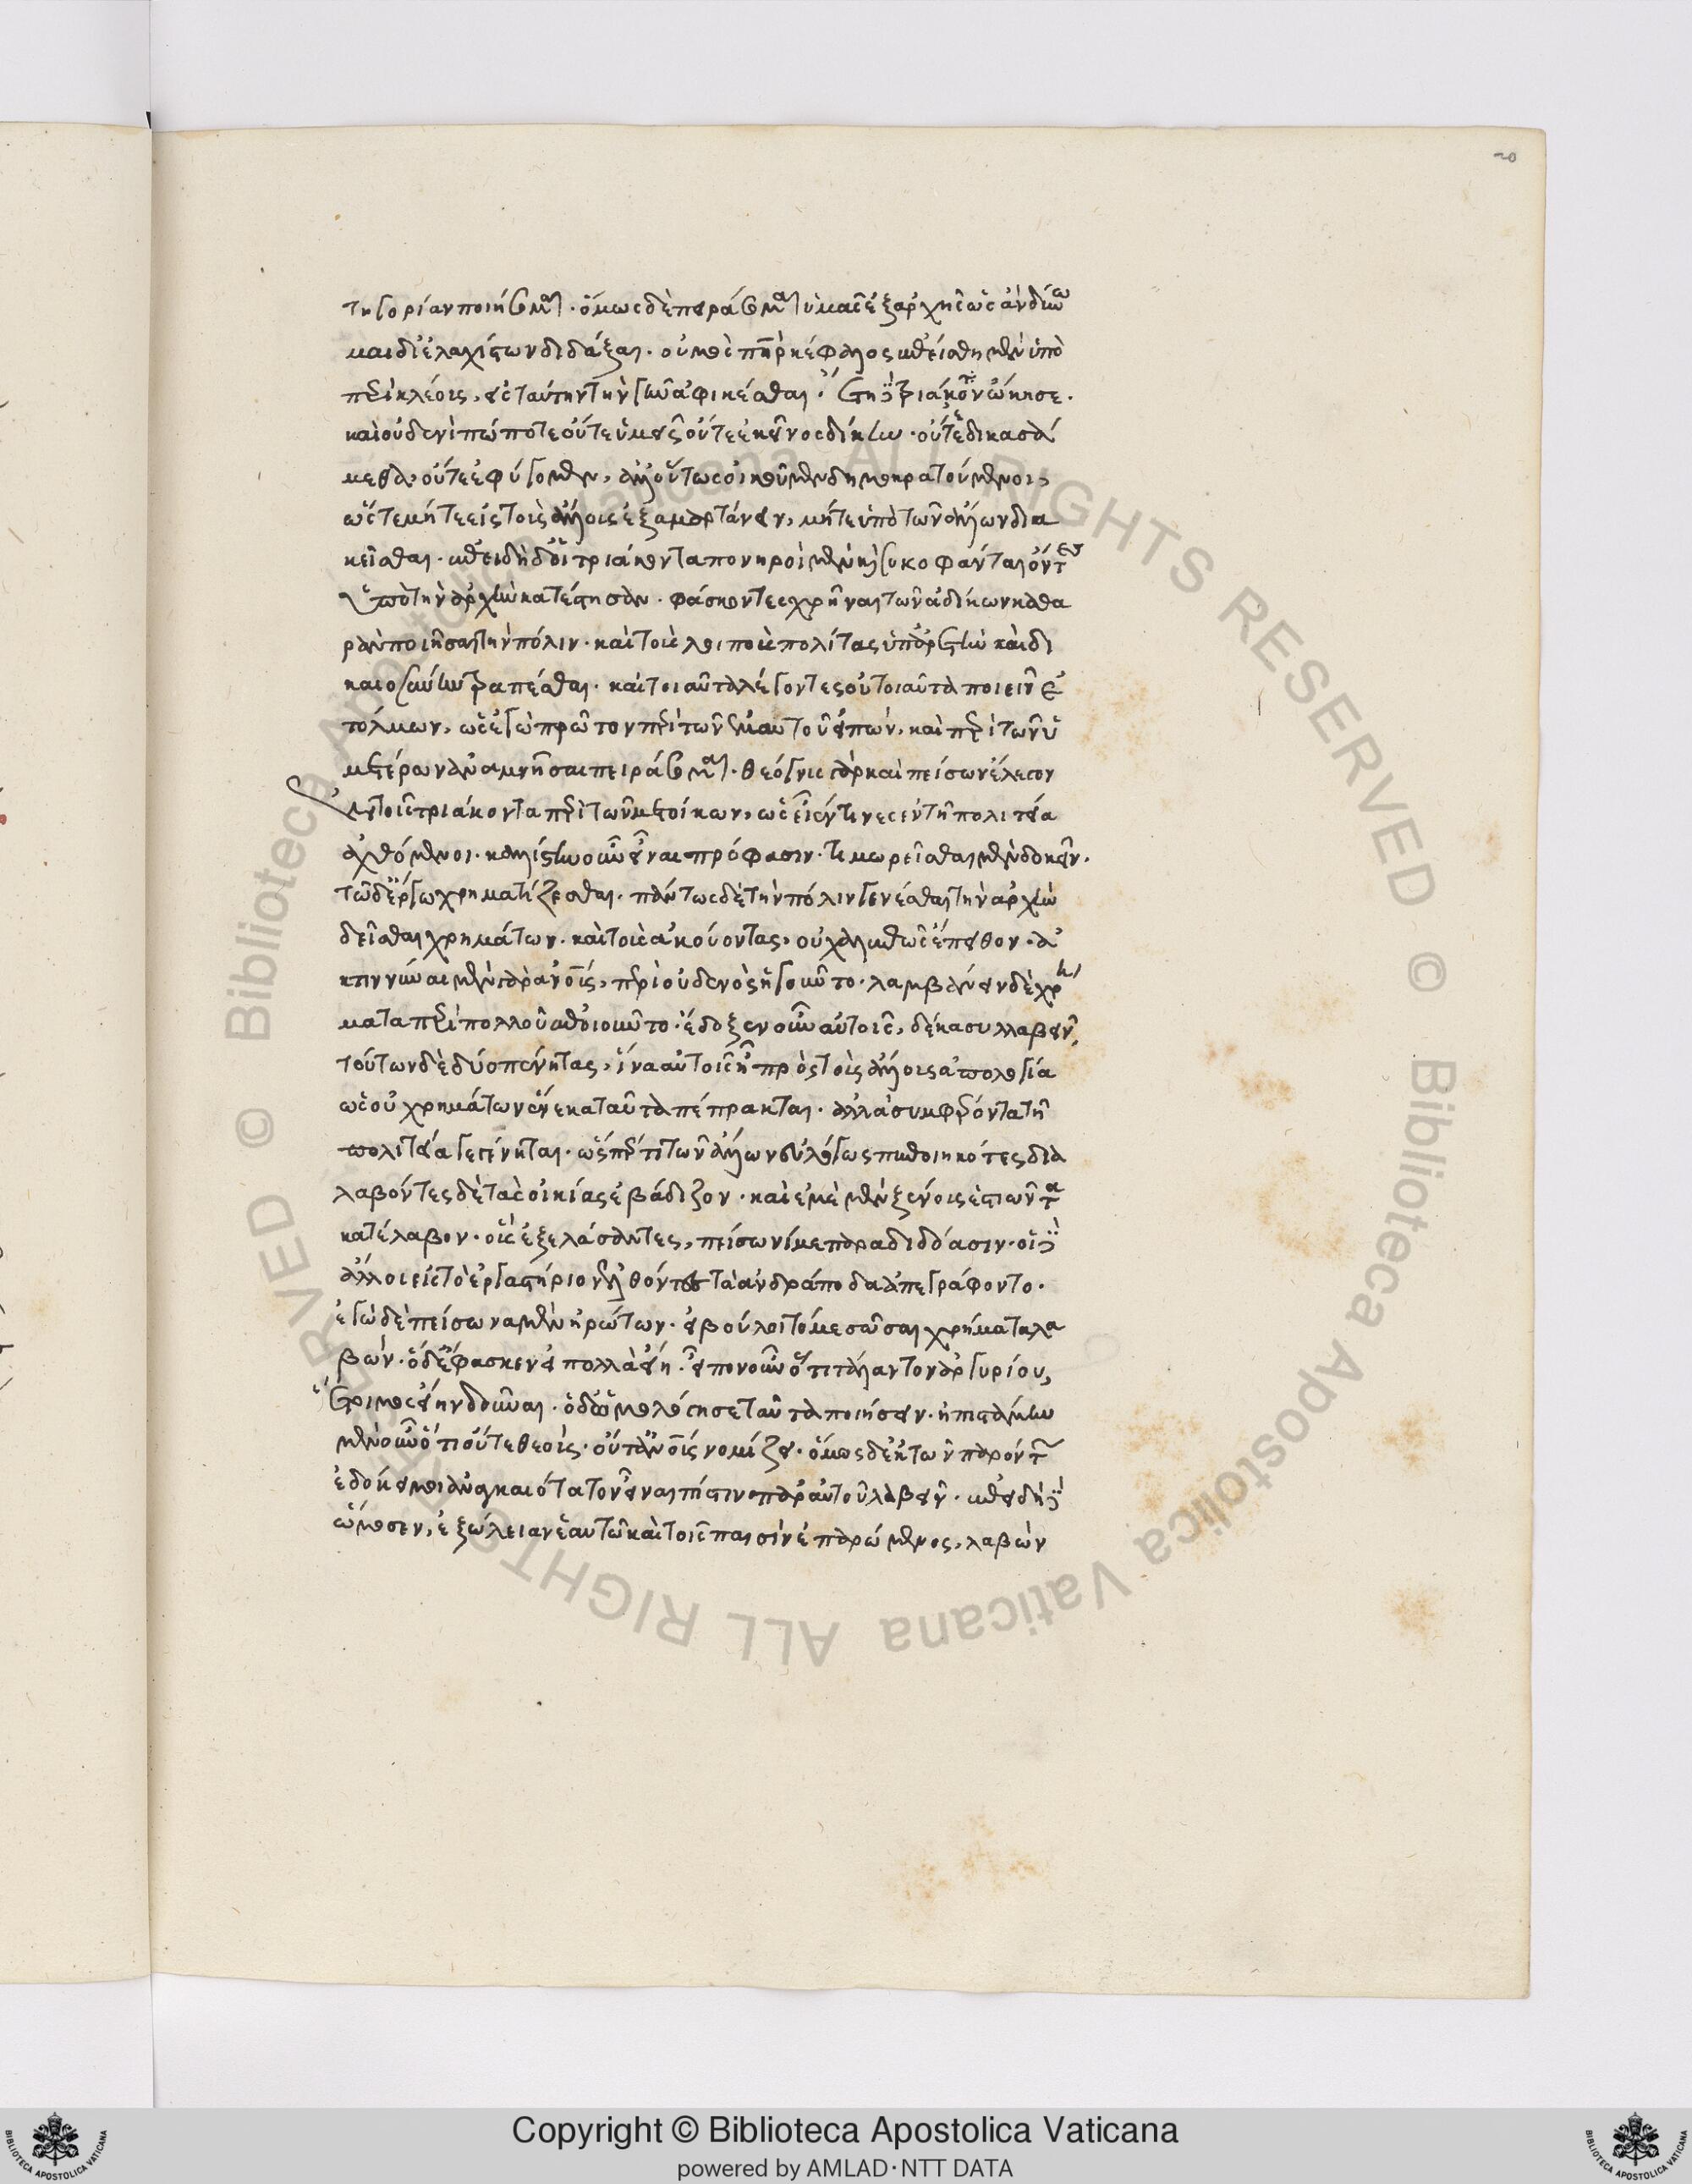 τηγορίαν ποιήσωμαι· ὅμως δὲ πειράσομαι ὑμᾶς ἐξ ἀρχῆς ὡς ἂν δύνω
μαι δι' ἐλαχίστων διδάξαι. οὑμὸς πατὴρ κέφαλος ἐπείσθη μὲν ὑπὸ
περικλέους, εἰς ταύτην τὴν γῆν ἀφικέσθαι· ἔτη δὲ τριάκοντα ὤκησε.
καὶ οὐδενὶ πώποτε οὔτε ἡμεῖς οὔτε ἐκεῖνος δίκην· οὔτε ἐδικασά
μεθα, οὔτε ἐφύγομεν, ἀλλ' οὕτως οἰκοῦμεν δημοκρατούμενοι,
ὥστε μήτε εἰς τοὺς ἄλλους ἐξαμαρτάνειν, μήτε ὑπὸ τῶν ἄλλων ἀδια
κεῖσθαι. ἐπειδὴ δ' οἱ τριάκοντα πονηροὶ μὲν καὶ συκοφάνται ὄντες
εἰς τὴν ἀρχὴν κατέστησαν. φάσκοντες χρῆναι τῶν ἀδίκων καθα
ρὰν ποιῆσαι τὴν πόλιν. καὶ τοὺς λοιποὺς πολίτας ἐπ' ἀρετὴν καὶ δι
καιοσύνην τραπέσθαι. καὶ τοιαῦτα λέγοντες οὐ τοιαῦτα ποιεῖν ἐ
τόλμων, ὡς ἐγὼ πρῶτον περὶ τῶν ἐμαυτοῦ εἰπών, καὶ περὶ τῶν ὑ
μετέρων ἀναμνῆσαι πειράσομαι. θέογνις γὰρ καὶ πείσων ἔλεγον
ἐν τοῖς τριάκοντα περὶ τῶν μετοίκων, ὡς εἶέν τινες ἐν τῇ πολιτεία
ἀχθόμενοι. καλλίστην οὖν εἶναι πρόφασιν. τιμωρεῖσθαι μὲν δοκεῖν.
τῶ δ' ἔργω χρηματίζεσθαι. πάντως δὲ τὴν πόλιν γενέσθαι τὴν ἀρχὴν
δεῖσθαι χρημάτων. καὶ τοὺς ἀκούοντας, οὐ χαλεπῶς ἔπειθον. ἀ
κτιννύναι μὲν γὰρ ἀνθρώπους, περὶ οὐδενὸς ἡγοῦντο. λαμβάνειν δὲ χρή
ματα περὶ πολλοῦ ἐποιοῦντο. ἔδοξεν οὖν αὐτοῖς, δέκα συλλαβεῖν,
τούτων δὲ δύο πένητας, ἵνα αὐτοῖς ᾖ πρὸς τοὺς ἄλλους ἀπολογία
ὡς οὐ χρημάτων ἕνεκα ταῦτα πέπρακται. ἀλλὰ συμφέροντα τῇ
πολιτεία γεγένηται. ὥσπερ τι τῶν ἄλλων εὐλόγως πεποιηκότες δια
λαβόντες δὲ τὰς οἰκίας ἐβάδιζον. καὶ ἐμὲ μὲν ξένους ἑστιῶντα
κατέλαβον. οὓς ἐξελάσαντες, πείσωνί με παραδιδόασιν. οἱ δὲ
ἄλλοι εἰς τὸ ἐργαστήριον ἐλθόντες τὰ ἀνδράποδα ἀπεγράφοντο.
ἐγὼ δὲ πείσωνα μὲν ἠρώτων. εἰ βούλοιτό με σῶσαι χρήματα λα
βών. ὁ δ' ἔφασκεν εἰ πολλὰ εἴη. εἶπον οὖν ὅτι τάλαντον ἀργυρίου,
ἕτοιμος εἴην δοῦναι. ὁ δ' ὡμολόγησε ταῦτα ποιήσειν. ἠπιστάμην
μὲν οὖν ὅτι οὔτε θεούς. οὔτ' ἀνθρώπους νομίζει. ὅμως δ' ἐκ τῶν παρόντων
ἐδόκει μοι ἀναγκαιότατον εἶναι πίστιν παρ' αὐτοῦ λαβεῖν. ἐπειδὴ δὲ
ὤμοσεν, ἐξώλειαν ἑαυτῶ καὶ τοῖς παισὶν ἐπαρώμενος, λαβὼν
Copyright © Biblioteca Apostolica Vaticana
powered by AMLAD·NTT DATA